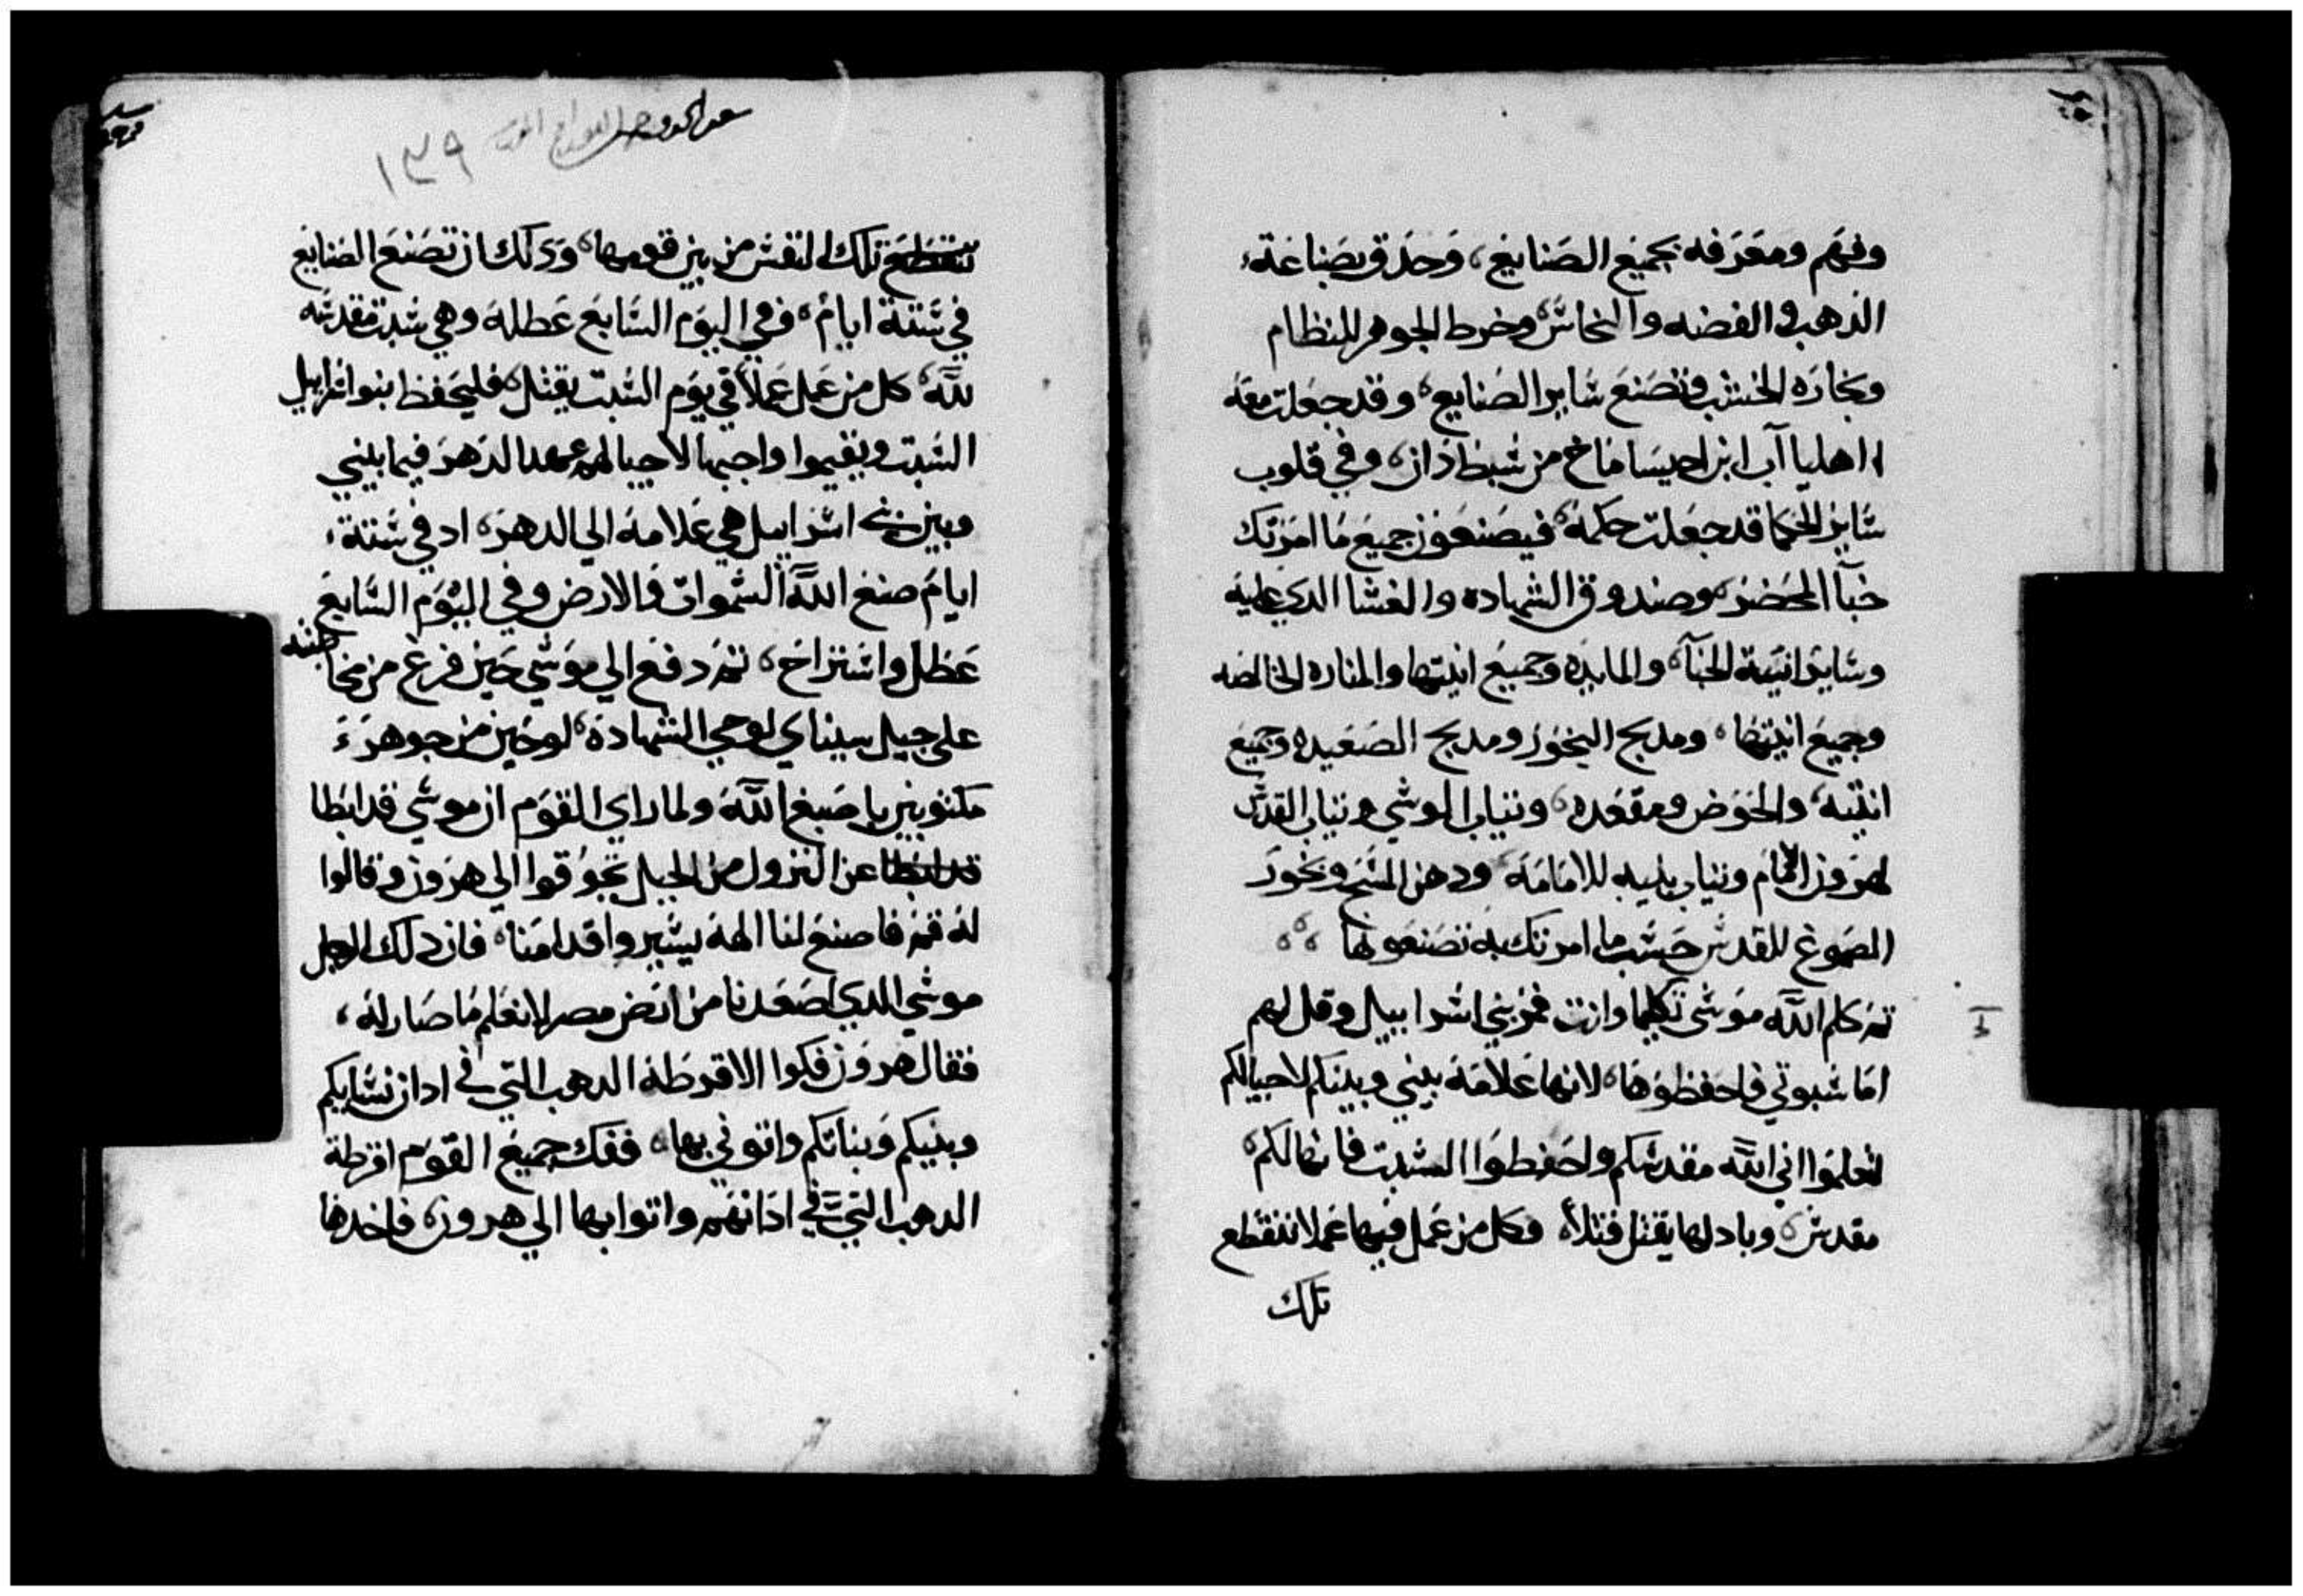 وفهم ومعرفه بجميع الصنايع، وحدق بصناعة
الذهب والفضه والنحاس، وخرط الجوهر للنظام
ونجارة الخشب وتصنع ساير الصنايع، وقد جعلت معه
اهلياآب ابن احيساماخ من سبط دان، وفي قلوب
ساير الحكما قد جعلت حكمة، فيصنعون جميع ما امرتك
خبآ المحضر، وصندوق الشهاده والغشا الدي عليه
وساير انية الخبآ، والمايده وجميع انيتها والمناره الخالصه
وجميع انيتها، ومدبح البخور ومدبح الصعيده وجميع
انيته، والحوض ومقعده، وتياب الوشي وتياب القدس
لهرون الامام وتياب بنيه للامامة، ودهن المسح وبخور
الصموغ للقدس حسب ما امرتك به تصنعونها
تم كلم الله موسى تكليما وانت فمر بني اسراييل وقل لهم
اما سبوتي فاحفظوها، لانها علامة بيني وبينكم لاجيالكم
لتعلموا اني الله مقدسكم واحفظوا السبت فانها لكم
مقدس، وبادلها يقتل قتلاً، وكل من عمل فيها عملا تنقطع
تلك
١٣٩
تنقطع تلك النفس من بين قومها، ودلك ان تصنع الصنايع
في ستة ايام، وفي اليوم السابع عطلة وهي سبت مقدسه
لله، كل من عمل عملاً في يوم السبت يقتل، فليحفظ بنو اسراييل
السبت ويقيموا واجبها لاجيالهم عهد الدهر فيما بيني
وبين بني اسراييل هي علامة الي الدهر، اد في ستة
ايام صنع الله السموات والارض وفي اليوم السابع
عطل واستراح، تم دفع الي موسي حين فرغ من مخاطبته
على جبل سيناي لوحي الشهادة، لوحين من جوهر
مكتوبين باصبع الله ولما راي القوم ان موسي قد ابطا
قد ابطا عن النزول من الجبل تجوقوا الي هرون وقالوا
له قم فاصنع لنا الهة يسيروا قدامنا، فان دلك الرجل
موسي الدي اصعدنا من ارض مصر لا نعلم ما صار له،
فقال هرون فكوا الاقرطة الدهب التي في ادان نسايكم
وبنيكم وبناتكم واتوني بها، ففك جميع القوم اقرطة
الدهب التي في ادانهم واتوا بها الي هرون، فاخدها